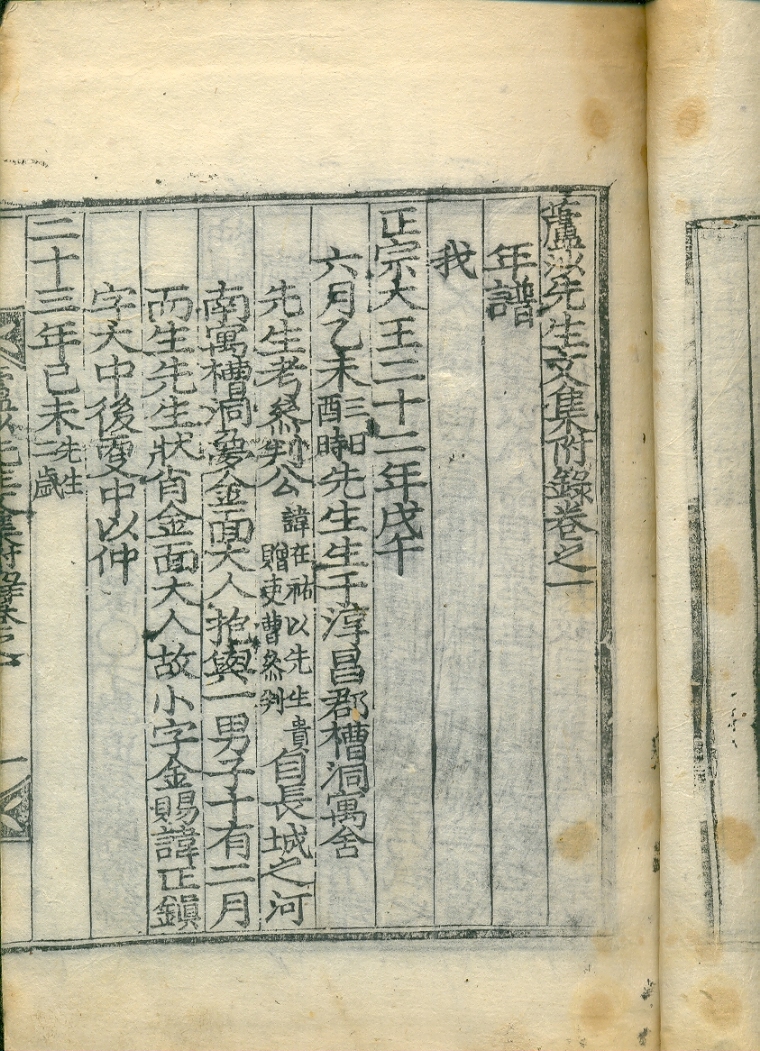 蘆沙先生文集附錄卷之一
年譜
我
正宗大王二十二年戊午
六月乙未三日酉時先生生于淳昌郡槽洞寓舍
先生考叅判公諱在祐以先生貴贈吏曹叅判自長城之河
南寓槽洞夢金面大人抱與一男子十有二月
而生先生狀肖金面大人故小字金賜諱正鎭
字大中後更中以仲
二十三年己未先生二歲
蘆沙先生文集附錄卷之一 一